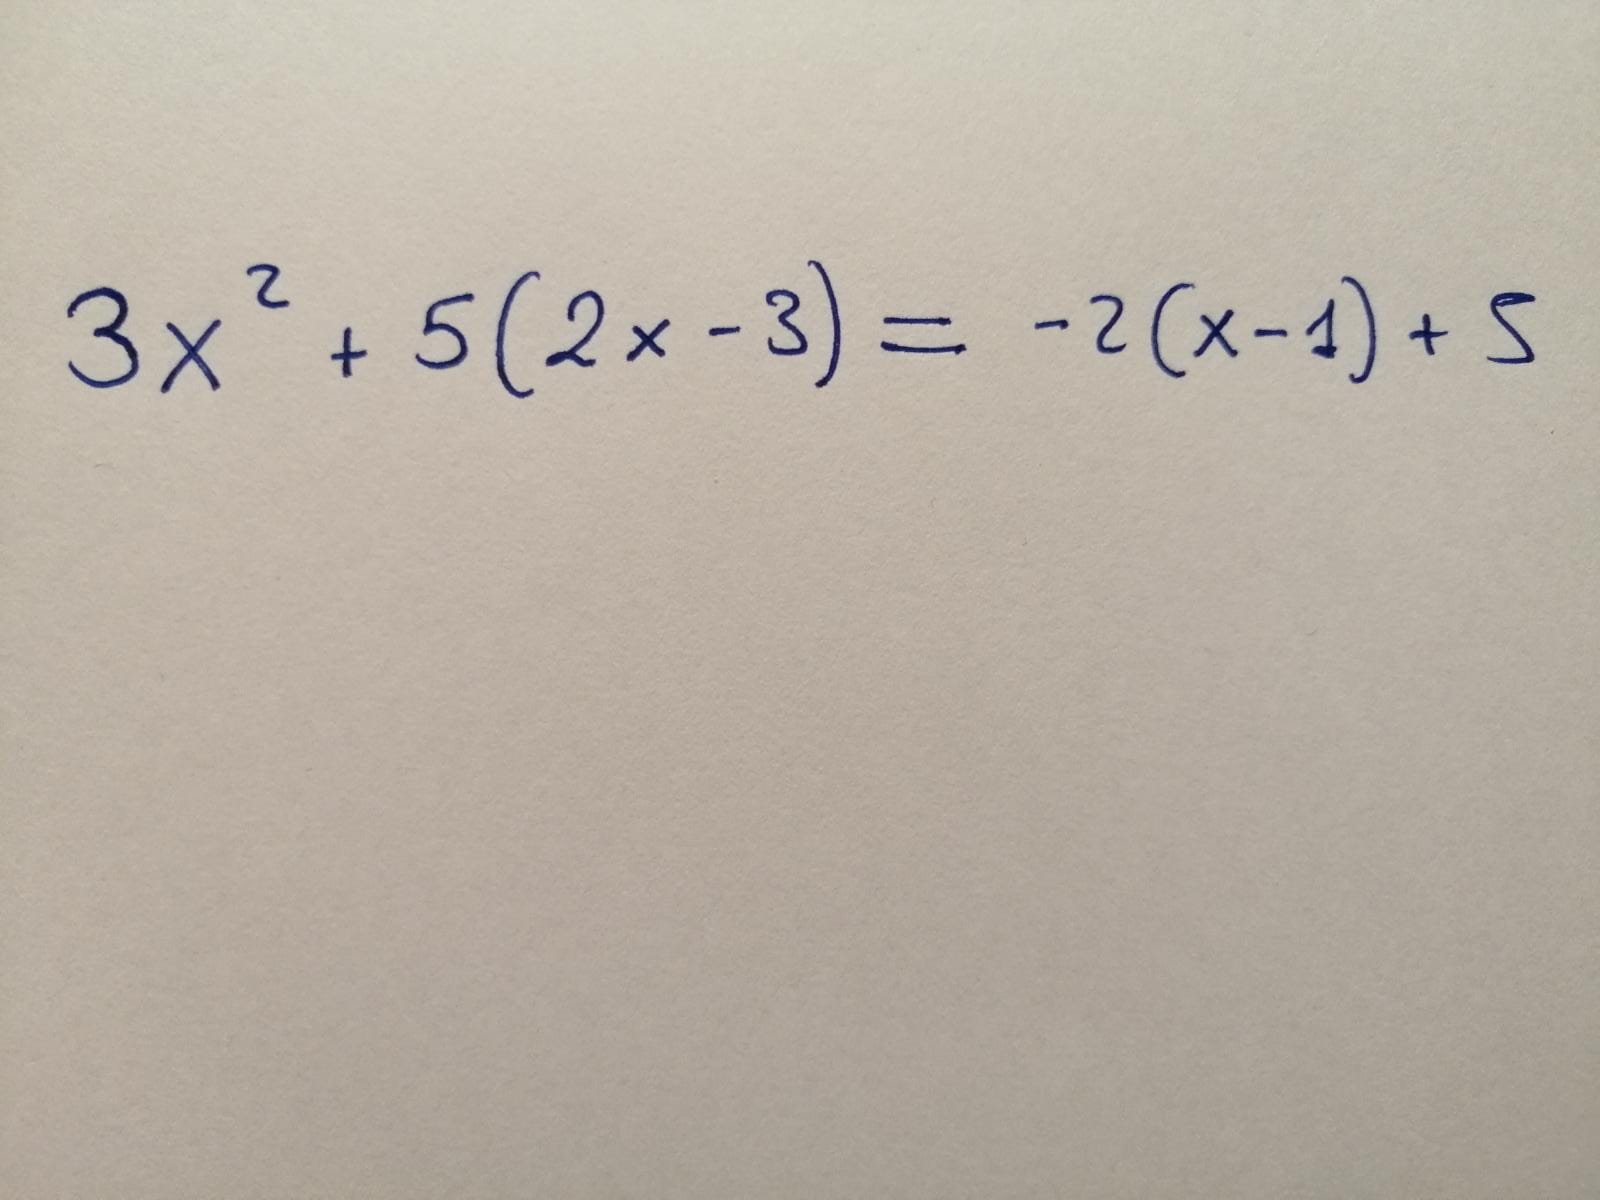 3x² + 5(2x - 3) = -2(x - 1) + 5